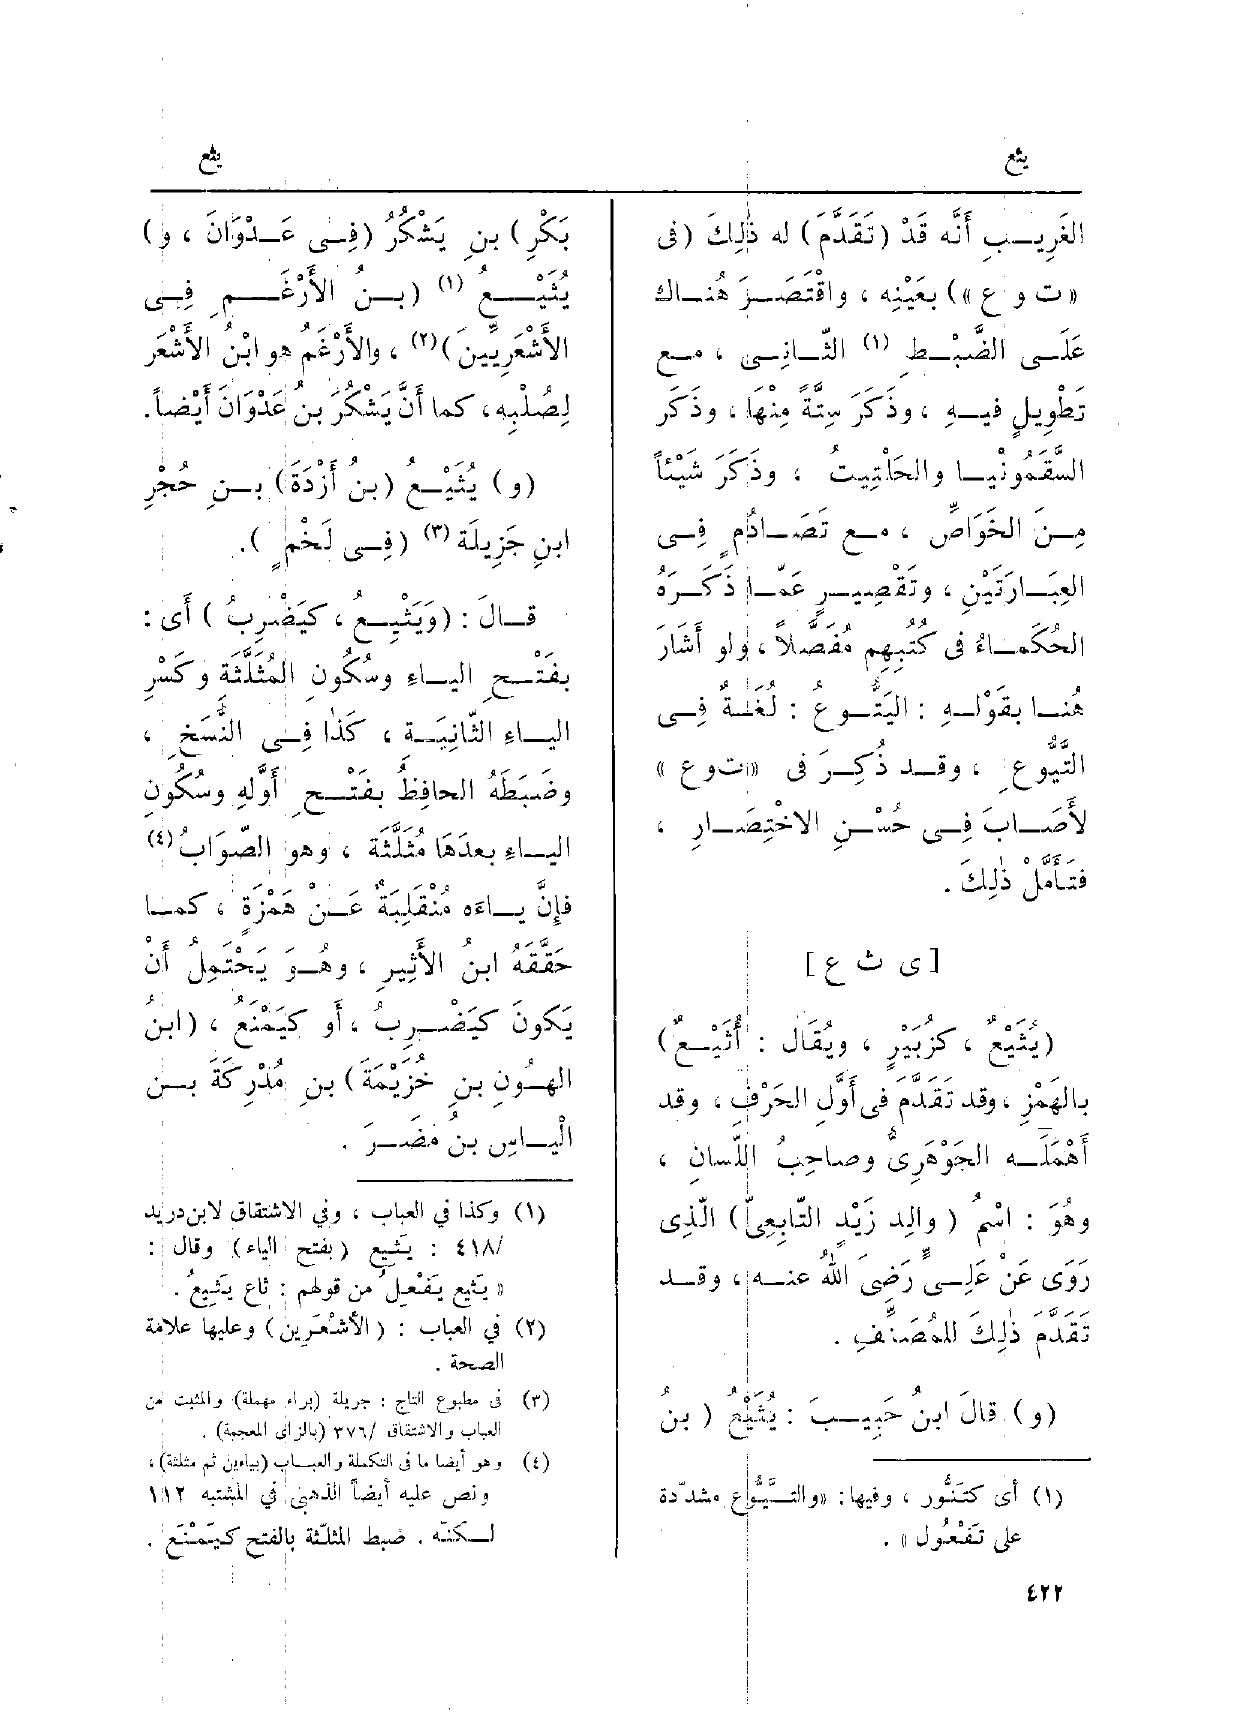 يثع
يثع
الغَرِيبِ أَنَّه قَدْ (تَقَدَّمَ) له ذٰلِكَ (فى
«ت و ع») بعَيْنِه ، واقْتَصَرَ هُنَاك
عَلَى الضَّبْطِ (١) الثّانِى ، مع
تَطْوِيلٍ فيهِ ، وذَكَرَ سِتَّةً مِنْها ، وذَكَر
السَّقَمُونْيَا والحَلْتِيتُ ، وذَكَرَ شَيْئاً
مِنَ الخَوَاصِّ ، مع تَصَادُمٍ فِى
العِبَارَتَيْنِ ، وتَقْصِيرٍ عَمّا ذَكَرَهُ
الحُكَمَاءُ فى كُتُبِهِم مُفَصَّلاً ، ولو أَشَارَ
هُنا بقَوْلِهِ : اليَتُّوعُ : لُغَةٌ فِى
التَّيُّوعِ ، وقد ذُكِرَ فى «ت و ع»
لأَصَابَ فِى حُسْنِ الاخْتِصَارِ ،
فتَأَمَّلْ ذٰلِكَ .
[ ى ث ع ]
(يُثَيْعٌ ، كزُبَيْرٍ ، ويُقَال : أُثَيْعٌ)
بالهَمْزِ ، وقد تَقَدَّمَ فى أَوَّلِ الحَرْفِ ، وقد
أَهْمَلَه الجَوْهَرِىُّ وصاحِبُ اللِّسَانِ ،
وهُوَ : اسْمُ ( والِدِ زَيْدٍ التّابِعِىّ) الَّذِى
رَوَى عَنْ عَلِىٍّ رَضِىَ اللهُ عنه ، وقد
تَقَدَّمَ ذٰلِكَ للمُصَنِّفِ .
(و) قالَ ابنُ حَبِيبَ : يُثَيْعُ ( بنُ
(١) أى كتَنُّور ، وفيها : «والتَّيُّوع مشدّدة
على تَفْعُول » .
بَكْرِ) بنِ يَشْكُرُ (فِى عَدْوَانَ ، و)
يُثَيْعُ (١) (بنُ الأَرْغَمِ فِى
الأَشْعَرِيِّينَ)(٢) ، والأَرْغَمُ هو ابْنُ الأَشْعَر
لِصُلْبِه ، كما أَنَّ يَشْكُرَ بنُ عَدْوَانَ أَيْضاً.
(و) يُثَيْعُ (بنُ أَزْدَةَ) بنِ حُجْرِ
ابنِ جَزِيلَة (٣) (فِى لَخْمٍ ).
قالَ : (وَيَثْيِعُ ، كيَضْرِبُ ) أَى :
بفَتْحِ الياءِ وسُكُونِ المُثَلَّثَةِ وكَسْرِ
الياءِ الثّانِيَةِ ، كَذٰا فِى النُّسَخِ ،
وضَبَطَهُ الحافِظُ بفَتْحِ أَوَّلِهِ وسُكُونِ
الياءِ بعدَهَا مُثَلَّثَة ، وهو الصَّوَابُ(٤)
فإِنَّ ياءَه مُنْقَلِبَةٌ عَنْ هَمْزَةٍ ، كما
حَقَّقَهُ ابنُ الأَثِيرِ ، وهُوَ يَحْتَمِلُ أَنْ
يَكُونَ كيَضْرِبُ ، أَو كيَمْنَعُ ، (ابنُ
الهُونِ بنِ خُزَيْمَةَ) بنِ مُدْرِكَةَ بن
الْياسِ بنُ مُضَرَ .
(١) وكذا في العباب ، وفي الاشتقاق لابن دريد
/٤١٨ : يَثيع (بفتح الياء) وقال :
« يَثيع يَفْعلُ من قولهم : ثاع يَثيعُ .
(٢) في العباب : (الأشْعَرين) وعليها علامة
الصحة .
(٣) فى مطبوع التاج : جريلة (براء مهملة) والمثبت من
العباب والاشتقاق /٣٧٦ (بالزاى المعجمة) .
(٤) وهو أيضا ما فى التكملة والعباب (بياءين ثم مثلثة) ،
ونص عليه أيضاً الذهبى في المشتبه ١١٢
لكنّه . ضبط المثلّثة بالفتح كيَمْنَع .
٤٢٢